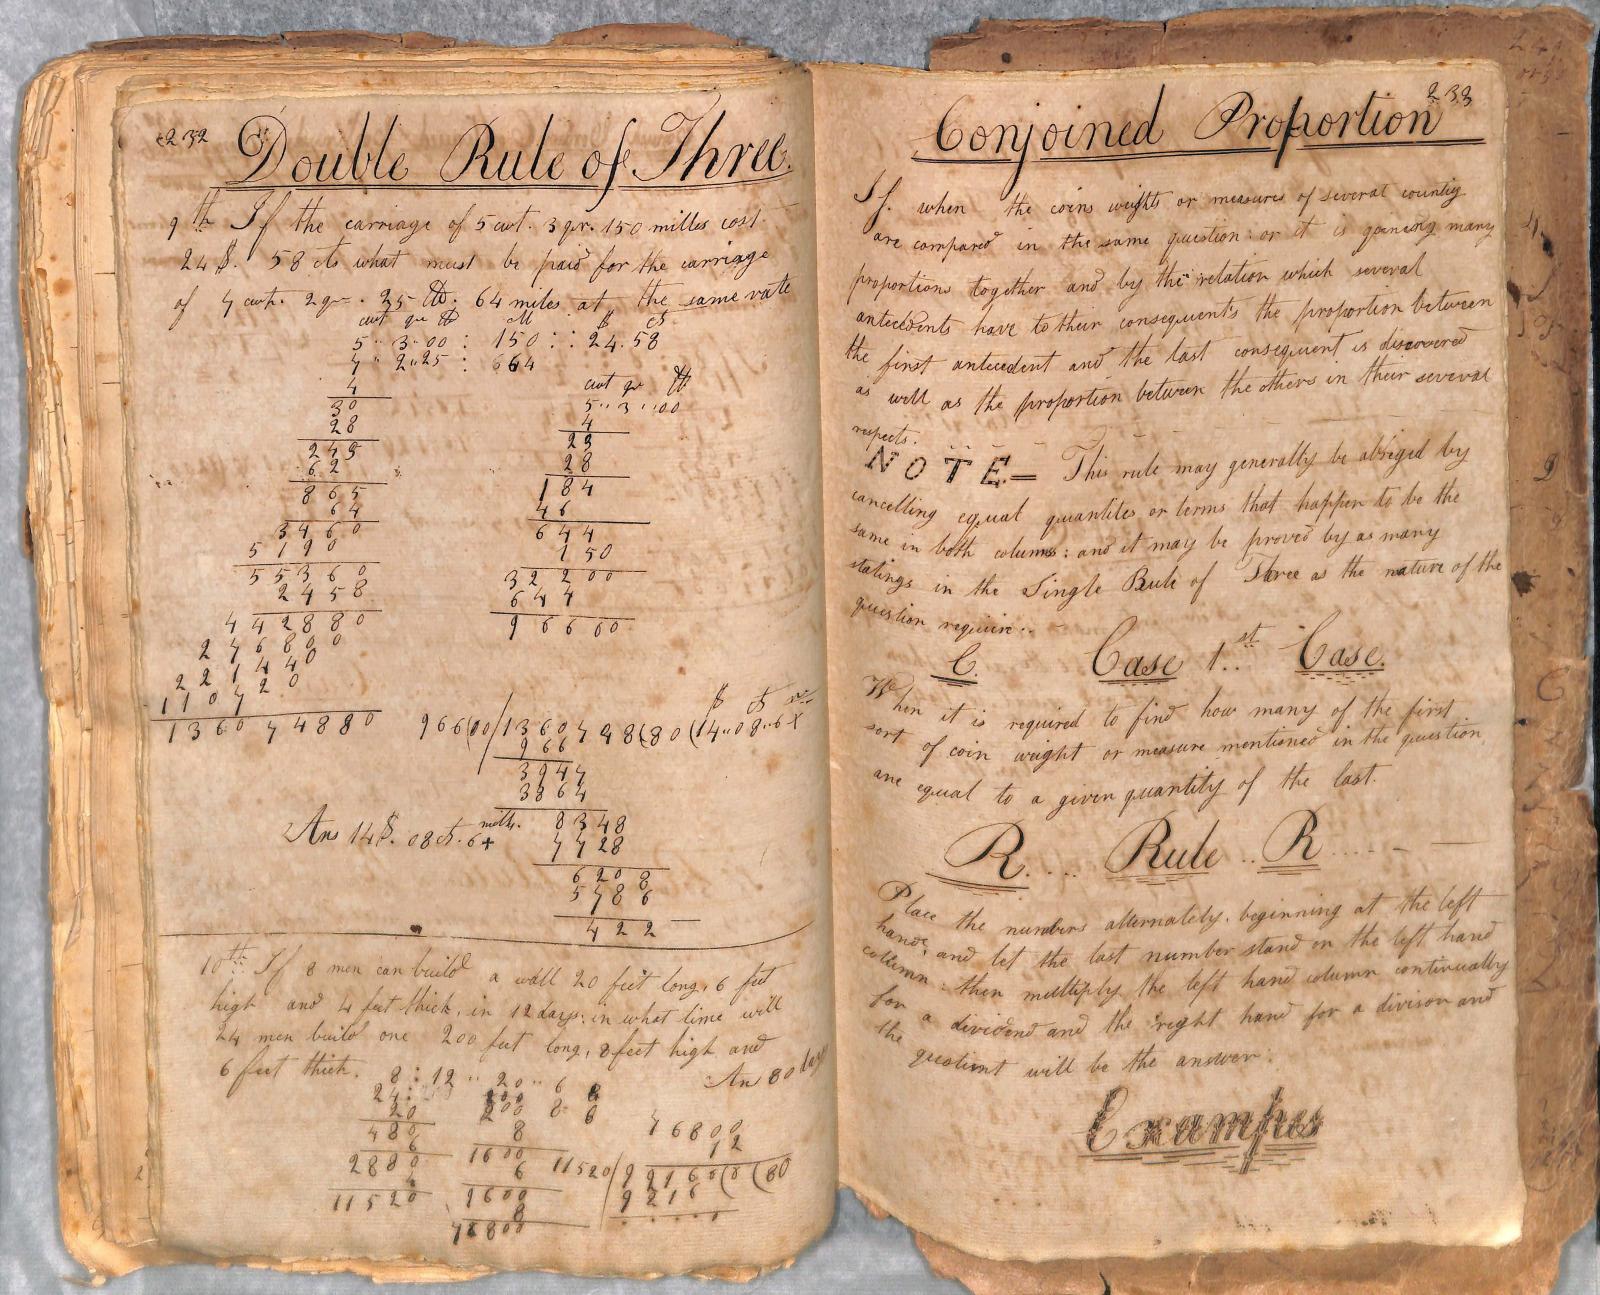 232
Double Rule of Three.
9th If the carriage of 5 cwt. 3 qr. 150 milles cost
24 $. 58 cts what must be paid for the carriage
of 7 cwt. 2 qr. 25 lb. 64 miles at the same rate
cwt qr lb M $ ct
5 " 3 " 00 : 150 : : 24.58
7 " 2 " 25 : 664
4 cwt qr lb
30 5 " 3 " 00
28 4
245 23
62 28
865 184
64 46
3460 644
5190 150
55360 32200
2458 644
442880 96600
276800
221440
11072
136074880
$ ct m
966(00/1360748(80(14"08"6+
966
3947
3864
8348
7728
6208
5786
422
Ans 14$. 08 ct. 6+ mills.
10th If 8 men can build a wall 20 feet long, 6 feet
high and 4 feet thick, in 12 days: in what time will
24 men build one 200 feet long, 8 feet high and
6 feet thick. An 80 days
8 : 12 " 20 " 6
24 : 200 8 6
20 8
480 1600
6 6
2880 9600
4 8
11520 76800
76800
12
11520/921600(80
9216
0
233
Conjoined Proportion
If. when the coins weights or measures of several county
are compared in the same question: or it is joining many
proportions together and by the relation which several
antecedents have to their consequents the proportion between
the first antecedent and the last consequent is discovered
as well as the proportion between the others in their several
respects.
NOTE= This rule may generally be abriged by
cancelling equal quantites or terms that happen to be the
same in both colums: and it may be proved by as many
statings in the Single Rule of Three as the nature of the
question require.
C. Case 1st Case.
When it is required to find how many of the first
sort of coin weight or measure mentioned in the question
are equal to a given quantity of the last.
R.... Rule .. R
Place the numbers alternately, beginning at the left
hand, and let the last number stand on the left hand
collumn: then multiply the left hand column continually
for a dividend and the right hand for a divison and
the quotient will be the answer.
Examples